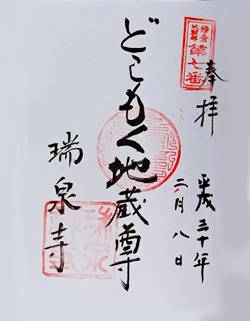 鎌倉
地蔵尊
第七番
奉拝
平成三十年
二月八日
どこもく地蔵尊
瑞泉寺